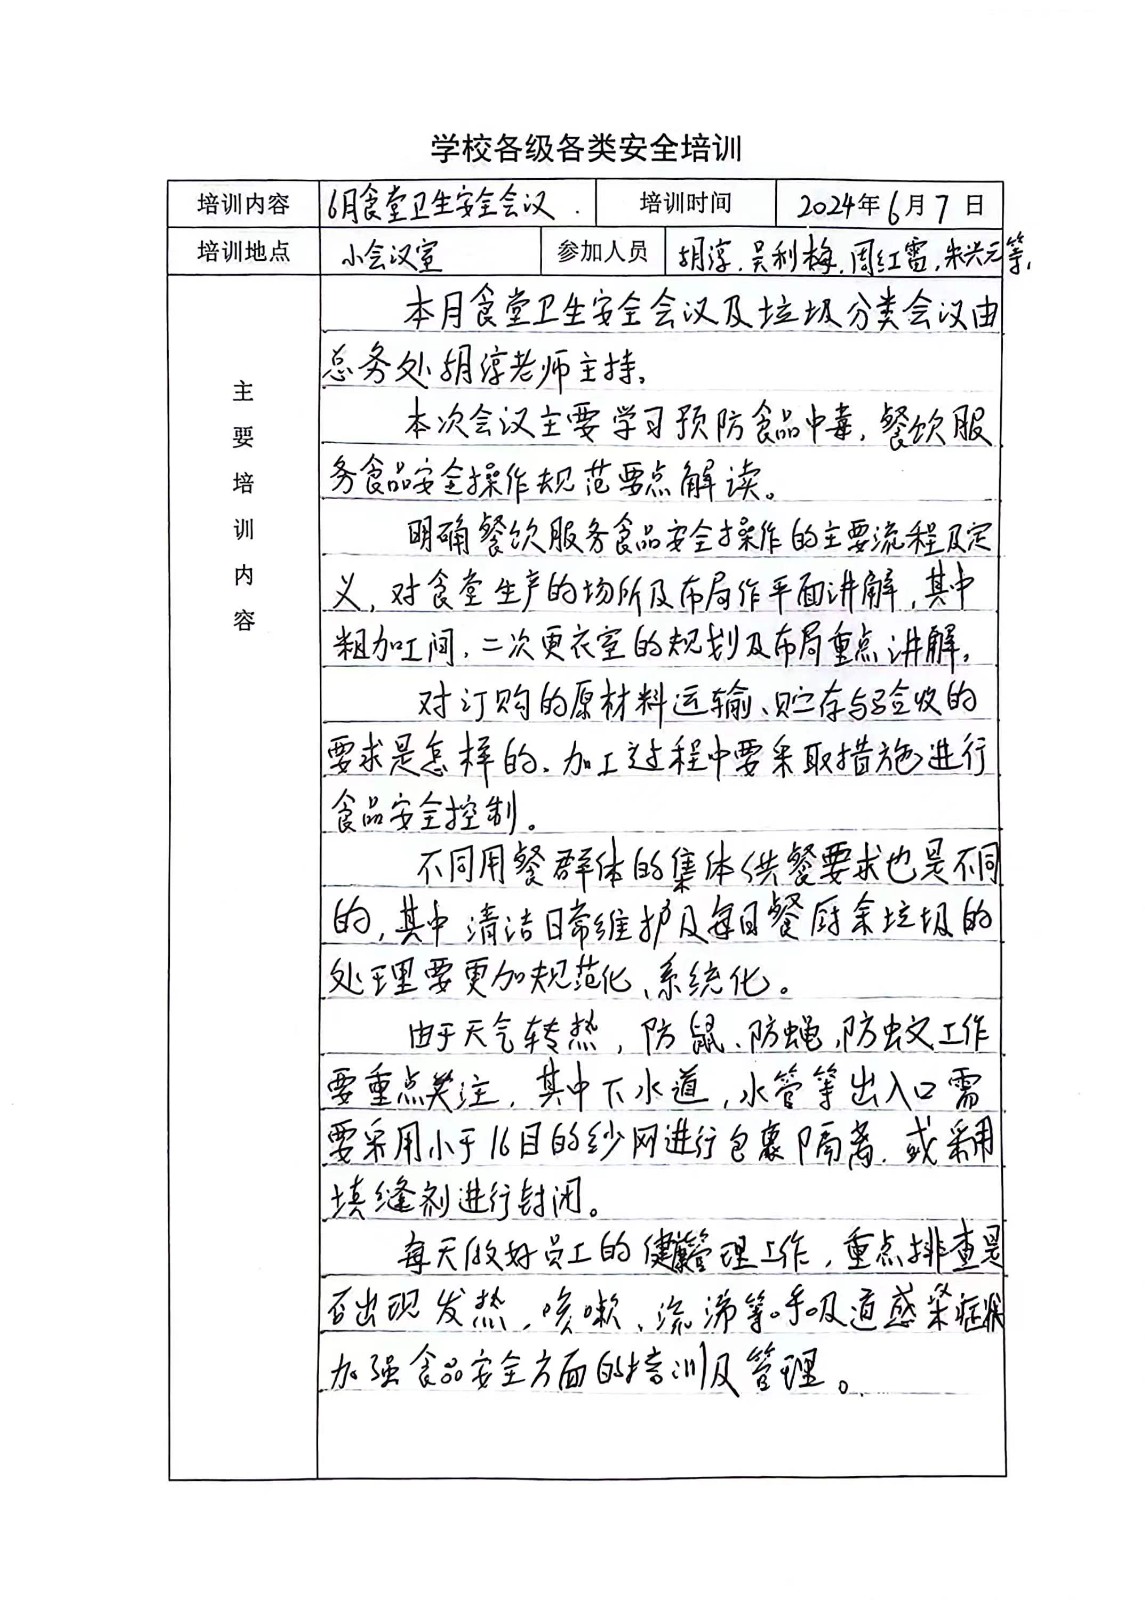 学校各级各类安全培训
培训内容 6月食堂卫生安全会议. 培训时间 2024年6月7日
培训地点 小会议室 参加人员 胡淳.吴利梅.周红雷.朱兴元等.
主要培训内容
本月食堂卫生安全会议及垃圾分类会议由
总务处胡淳老师主持.
本次会议主要学习预防食品中毒,餐饮服
务食品安全操作规范要点解读。
明确餐饮服务食品安全操作的主要流程及定
义,对食堂生产的场所及布局作平面讲解,其中
粗加工间,二次更衣室的规划及布局重点讲解,
对订购的原材料运输、贮存与验收的
要求是怎样的.加工过程中要采取措施进行
食品安全控制。
不同用餐群体的集体供餐要求也是不同
的,其中清洁日常维护及每日餐厨余垃圾的
处理要更加规范化、系统化。
由于天气转热,防鼠、防蝇,防蚊工作
要重点关注,其中下水道,水管等出入口需
要采用小于16目的纱网进行包裹隔离.或采用
填缝剂进行封闭。
每天做好员工的健康管理工作,重点排查是
否出现发热,咳嗽、流涕等呼吸道感染症状
加强食品安全方面的培训及管理。